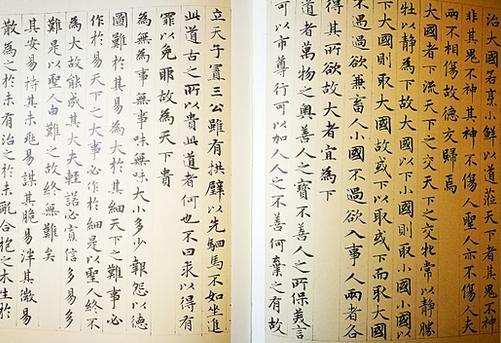 治大國若烹小鮮以道蒞天下者其鬼不神
非其鬼不神其神不傷人聖人亦不傷人夫
兩不相傷故德交歸焉
大國者下流天下之交天下之交牝常以靜勝
牡以靜為下故大國以下小國則取小國小國以
下大國則取大國故或下以取或下而取大國
不過欲兼畜人小國不過欲入事人兩者各
得其所欲故大者宜為下
道者萬物之奧善人之寶不善人之所保美言
可以市尊行可以加人人之不善何棄之有故
立天子置三公雖有拱璧以先駟馬不如坐進
此道古之所以貴此道者何也不曰求以得有
罪以免耶故為天下貴
為無為事無事味無味大小多少報怨以德
圖難於其易為大於其細天下之難事必
作於易天下之大事必作於細是以聖人終不
為大故能成其大夫輕諾必寡信多易多
難是以聖人由難之故終無難矣
其安易持其未兆易謀其脆易泮其微易
散為之於未有治之於未亂合抱之木生於